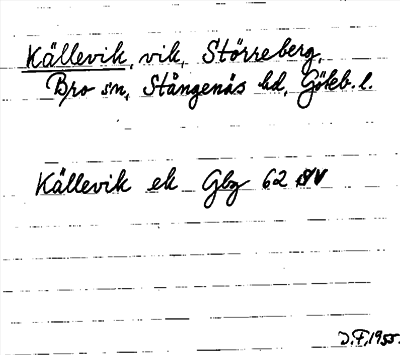 Källevik, vik, Störreberg,
Bro sn, Stångenäs hd, Göteb. l.
Källevik ek Gbg 62 SV
D.F. 1955.